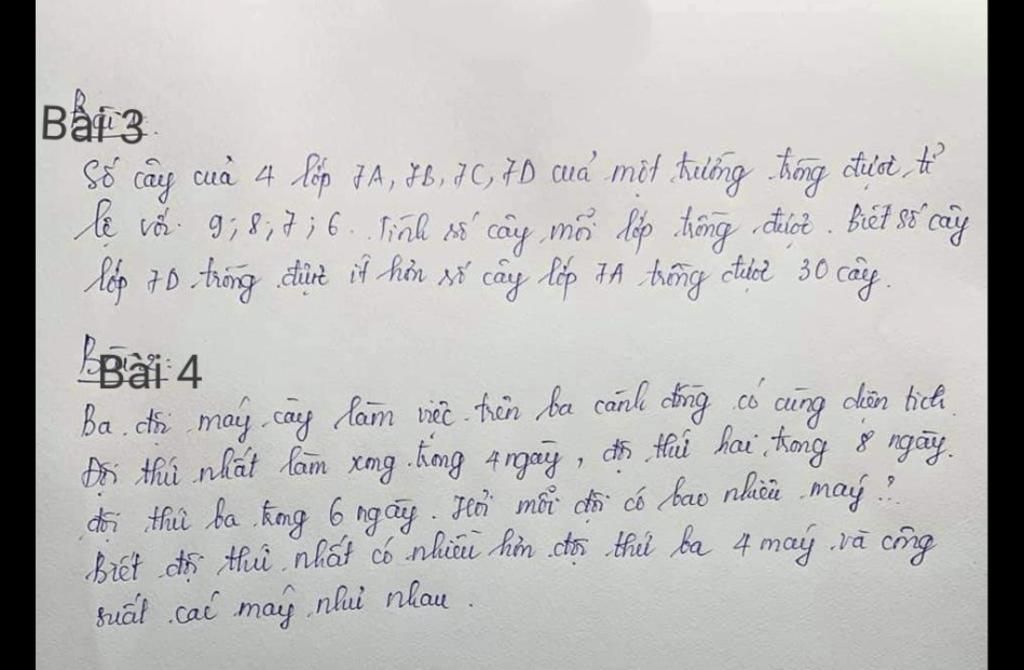 Bài 3
Số cây của 4 lớp 7A, 7B, 7C, 7D của một trường trồng được tỉ
lệ với 9; 8; 7; 6. Tính số cây mỗi lớp trồng được. Biết số cây
lớp 7D trồng được ít hơn số cây lớp 7A trồng được 30 cây.
Bài 4
Ba đội máy cày làm việc trên ba cánh đồng có cùng diện tích.
Đội thứ nhất làm xong trong 4 ngày, đội thứ hai trong 8 ngày.
đội thứ ba trong 6 ngày. Hỏi mỗi đội có bao nhiêu máy?
Biết đội thứ nhất có nhiều hơn đội thứ ba 4 máy và công
suất các máy như nhau.